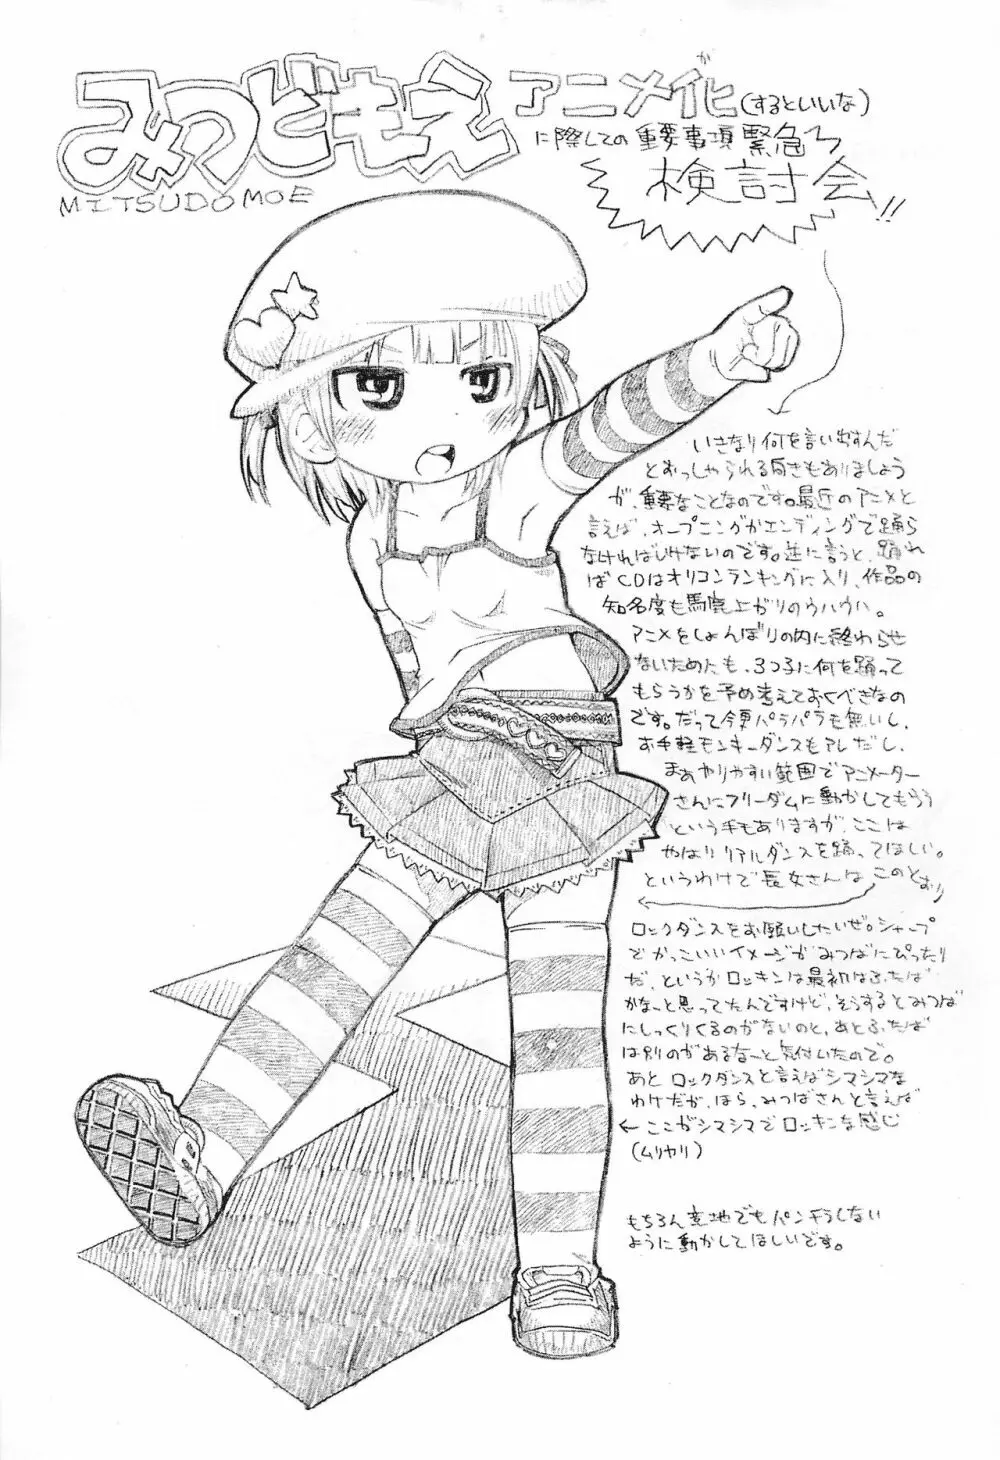 みつどもえ アニメ化(するといいな)
が
MITSUDOMOE
に際しての重要事項緊急
検討会!!
いきなり何を言い出すんだ
とおっしゃられる向きもありましょう
が、重要なことなのです。最近のアニメと
言えば、オープニングかエンディングで踊ら
なければいけないのです。逆に言うと、踊れ
ばCDはオリコンランキングに入り、作品の
知名度も馬鹿上がりのウハウハ。
アニメをしょんぼりの内に終わらせ
ないためにも、3つ子に何を踊って
もらうかを予め考えておくべきなの
です。だって今更パラパラも無いし、
お手軽モンキーダンスもアレだし、
まぁやりやすい範囲でアニメーター
さんにフリーダムに動かしてもらう
という手もありますが、ここは
やはりリアルダンスを踊ってほしい。
というわけで長女さんは このとおり
ロックダンスをお願いしたいぜ。シャープ
でかっこいいイメージがみつばにぴったり
だ、というかロッキンは最初はふたば
かなっと思ってたんですけど、そうするとみつば
にしっくりくるのがないのと、あとふたば
は別のがあるなーと気付いたので。
あとロックダンスと言えばシマシマな
わけだが、ほら、みつばさんと言えば
←ここがシマシマでロッキンな感じ
(ムリヤリ)
もちろん意地でもパンチラしない
ように動かしてほしいです。